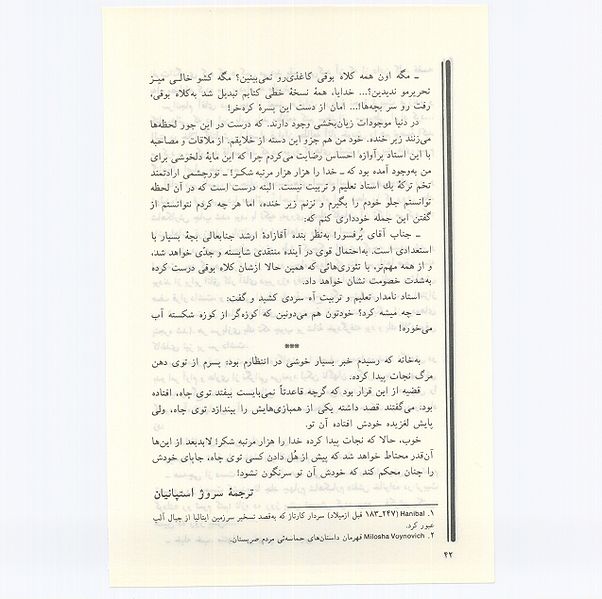 ـ مگه اون همه کلاه بوقی کاغذی‌رو نمی‌بینین؟ مگه کشو خالـی میـز
تحریرمو ندیدین؟... خدایا، همهٔ نسخهٔ خطی کتابم تبدیل شد به‌کلاه بوقی،
رفت رو سر بچه‌ها!... امان از دست این پسرهٔ کره‌خر!
در دنیا موجودات زیان‌بخشی وجود دارند. که درست در این جور لحظه‌ها
می‌زنند زیر خنده. خود من هم جزو این دسته از خلایقم. از ملاقات و مصاحبه
با این استاد پرآوازه احساس رضایت می‌کردم چرا که این مایهٔ دلخوشی برای
من به‌وجود آمده بود که ـ خدا را هزار هزار مرتبه شکـر! ـ نورچشمی ارادتمند
تخم ترکهٔ یك استاد تعلیم و تربیت نیست. البته درست است که در آن لحظه
توانستم جلو خودم را بگیرم و نزنم زیر خنده، اما هر چه کردم نتوانستم از
گفتن این جمله خودداری کنم که:
ـ جناب آقای پُرفسور! به‌نظر بنده آقازادهٔ ارشد جنابعالی بچهٔ بسیار با
استعدادی است. به‌احتمال قوی در آینده منتقدی شایسته و جدّی خواهد شد،
و از همه مهم‌تر، با تئوری‌هائی که همین حالا ازشان کلاه بوقی درست کرده
به‌شدت خصومت نشان خواهد داد.
استاد نامدار تعلیم و تربیت آه سردی کشید و گفت:
ـ چه میشه کرد؟ خودتون هم می‌دونین که کوزه‌گر از کوزه شکسته آب
می‌خوره!
***
به‌خانه که رسیدم خبر بسیار خوشی در انتظارم بود: پسرم از توی دهن
مرگ نجات پیدا کرده.
قضیه از این قرار بود که گرچه قاعدتاً نمی‌بایست بیفتد توی چاه، افتاده
بود: می‌گفتند قصد داشته یکی از همبازی‌هایش را بیندازد توی چاه، ولی
پایش لغزیده خودش افتاده آن تو.
خوب، حالا که نجات پیدا کرده خدا را هزار مرتبه شکر! لابدبعد از این‌ها
آن‌قدر محتاط خواهد شد که پیش از هُل دادن کسی توی چاه، جاپای خودش
را چنان محکم کند که خودش آن تو سرنگون نشود!
ترجمهٔ سروژ استپانیان
۱. Hanibal (۲۴۷ـ۱۸۳ قبل ازمیلاد) سردار کارتاژ که به‌قصد تسخیر سرزمین ایتالیا از جبال آلپ
عبور کرد.
۲. Milosha Voynovich قهرمان داستان‌های حماسه‌ئی مردم صربستان.
۴۲